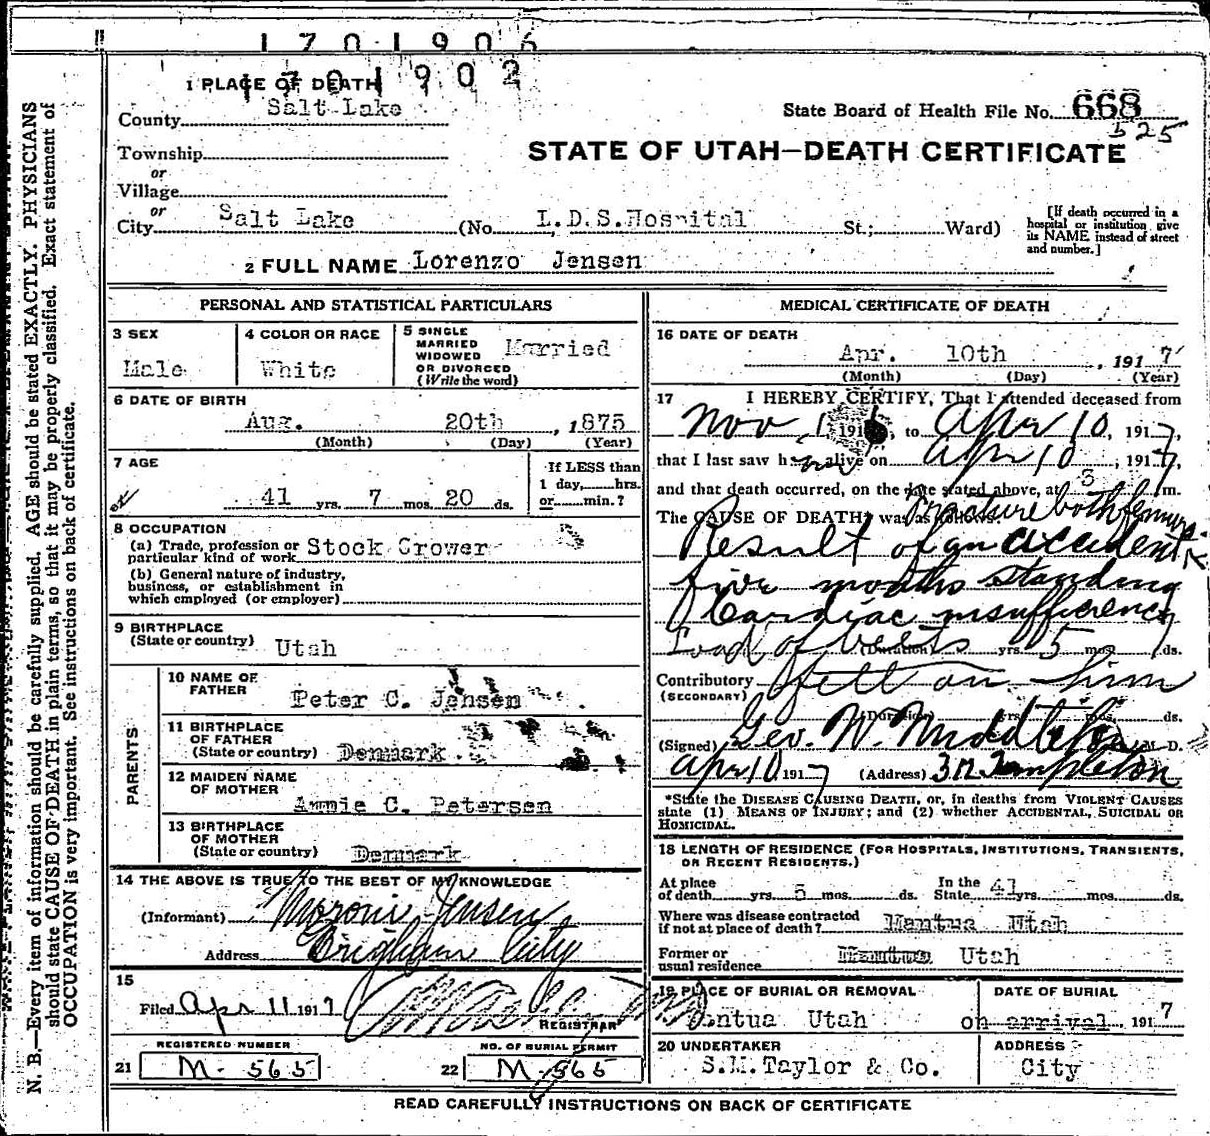 1701906
1701902
1 PLACE OF DEATH
County Salt Lake
State Board of Health File No. 668
525
Township
or
Village
STATE OF UTAH—DEATH CERTIFICATE
or
City Salt Lake (No. L.D.S.Hospital St.; Ward)
[If death occurred in a hospital or institution give its NAME instead of street and number.]
2 FULL NAME Lorenzo Jensen
PERSONAL AND STATISTICAL PARTICULARS
3 SEX
Male
4 COLOR OR RACE
White
5 SINGLE
MARRIED
WIDOWED
OR DIVORCED
(Write the word)
Married
6 DATE OF BIRTH
Aug. 20th, 1875
(Month) (Day) (Year)
7 AGE
41 yrs. 7 mos. 20 ds.
If LESS than
1 day, hrs.
or min.?
8 OCCUPATION
(a) Trade, profession or
particular kind of work Stock Grower
(b) General nature of industry,
business, or establishment in
which employed (or employer)
9 BIRTHPLACE
(State or country) Utah
PARENTS
10 NAME OF
FATHER
Peter C. Jensen
11 BIRTHPLACE
OF FATHER
(State or country) Denmark
12 MAIDEN NAME
OF MOTHER
Annie C. Petersen
13 BIRTHPLACE
OF MOTHER
(State or country) Denmark
14 THE ABOVE IS TRUE TO THE BEST OF MY KNOWLEDGE
(Informant) Moroni Jensen
Address Brigham City
15
Filed Apr 11 1917
REGISTRAR
REGISTERED NUMBER
21 M- 565
NO. OF BURIAL PERMIT
22 M-565
MEDICAL CERTIFICATE OF DEATH
16 DATE OF DEATH
Apr. 10th, 1917
(Month) (Day) (Year)
17 I HEREBY CERTIFY, That I attended deceased from
Nov 1 191 , to Apr 10, 1917,
that I last saw him alive on Apr 10, 1917,
and that death occurred, on the date stated above, at 3 m.
The CAUSE OF DEATH* was as follows:
Fracture both femurs
Result of an accident
five months standing
Cardiac insufficiency
Load of beets
(Duration) yrs. 5 mos. ds.
Contributory fell on him
(SECONDARY)
(Duration) yrs. mos. ds.
(Signed) Geo. W. Middleton M. D.
Apr 10 1917 (Address) 312 Templeton
*State the DISEASE CAUSING DEATH, or, in deaths from VIOLENT CAUSES
state (1) MEANS OF INJURY; and (2) whether ACCIDENTAL, SUICIDAL OR
HOMICIDAL.
18 LENGTH OF RESIDENCE (FOR HOSPITALS, INSTITUTIONS, TRANSIENTS,
OR RECENT RESIDENTS.)
At place
of death yrs. 5 mos. ds.
In the
State 41 yrs. mos. ds.
Where was disease contracted
if not at place of death? Mantua Utah
Former or
usual residence Mantua Utah
19 PLACE OF BURIAL OR REMOVAL
Mantua Utah
DATE OF BURIAL
on arrival, 1917
20 UNDERTAKER
S.M.Taylor & Co.
ADDRESS
City
READ CAREFULLY INSTRUCTIONS ON BACK OF CERTIFICATE
N. B.—Every item of information should be carefully supplied. AGE should be stated EXACTLY. PHYSICIANS
should state CAUSE OF DEATH in plain terms, so that it may be properly classified. Exact statement of
OCCUPATION is very important. See instructions on back of certificate.